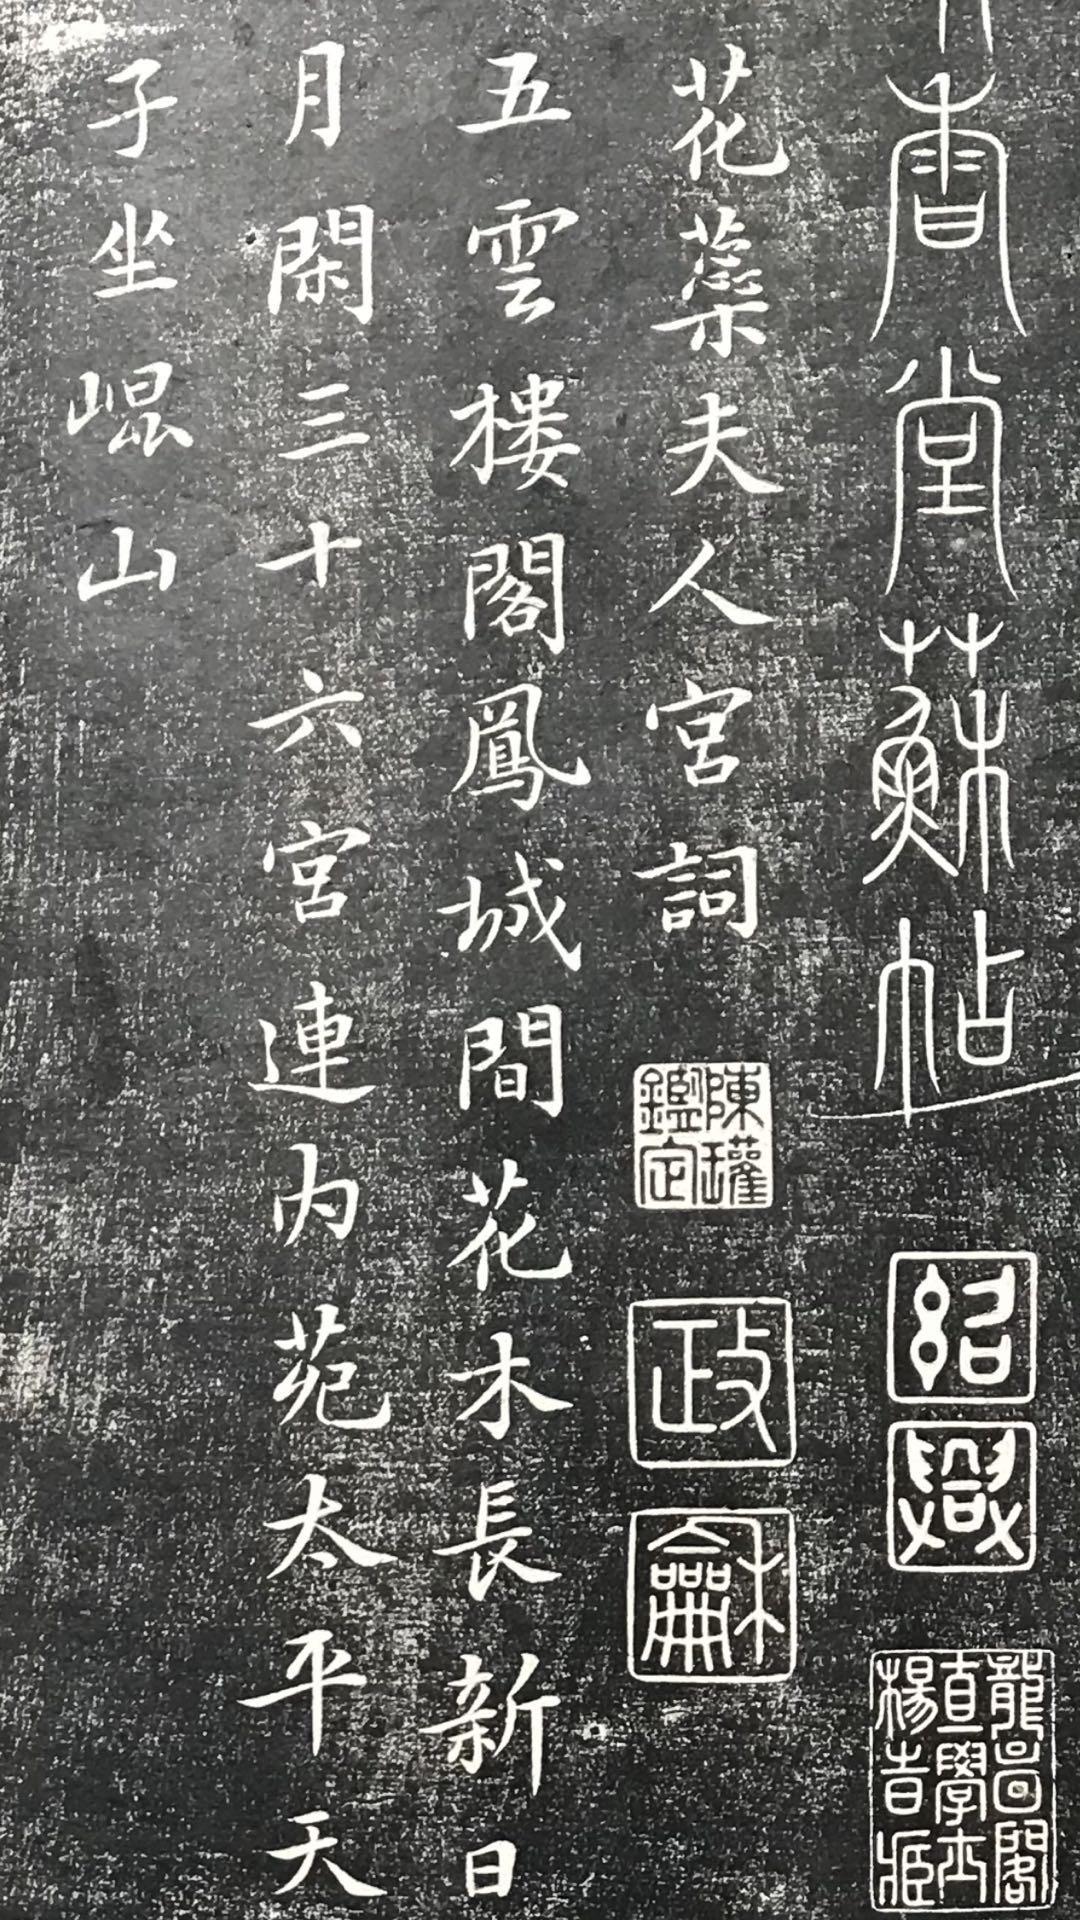 香堂蘇帖
紹
興
龍啚閣
直學士
楊
花蘂夫人宮詞
陳瓘
鑑定
政
龢
五雲樓閣鳳城間花木長新日
月閑三十六宮連内苑太平天
子坐崐山